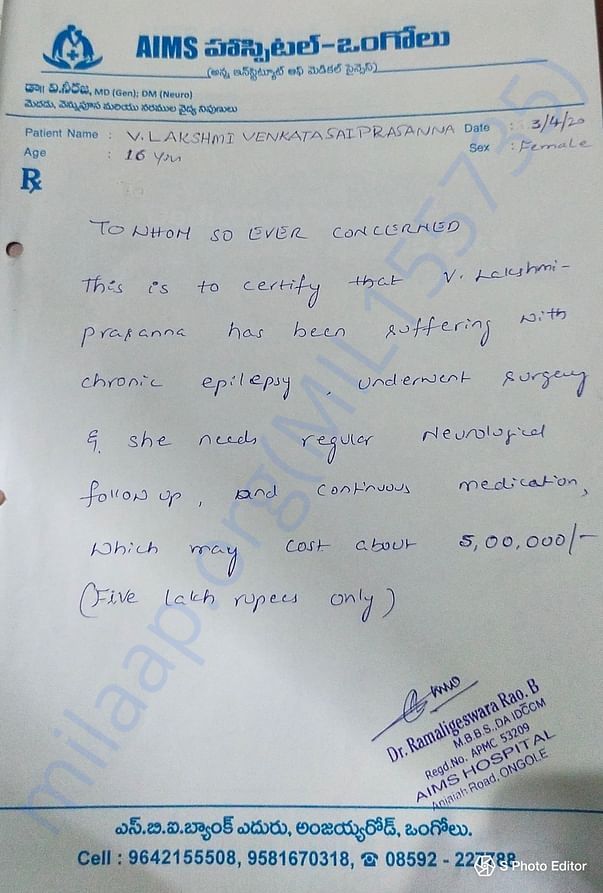 AIMS హాస్పిటల్-ఒంగోలు
(అన్న ఇన్‌స్టిట్యూట్ ఆఫ్ మెడికల్ సైన్సెస్)
డా॥ వి.నీరజ, MD (Gen); DM (Neuro)
మెదడు, వెన్నుపూస మరియు నరముల వైద్య నిపుణులు
Patient Name : V. LAKSHMI VENKATA SAI PRASANNA Date : 3/4/20
Age : 16 yrs Sex : Female
Rx
TO WHOM SO EVER CONCERNED
This is to certify that V. Lakshmi-
prasanna has been suffering with
chronic epilepsy, underwent surgery
& she needs regular Neurological
follow up, and continuous medication,
which may cost about 5,00,000/-
(Five lakh rupees only)
Dr. Ramaligeswara Rao. B
M.B.B.S., DA IDCCM
Regd.No. APMC 53209
AIMS HOSPITAL
Anjaiah Road, ONGOLE
ఎస్.బి.ఐ.బ్యాంక్ ఎదురు, అంజయ్యరోడ్, ఒంగోలు.
Cell : 9642155508, 9581670318, ☎ 08592 - 227788
S Photo Editor
milaap.org(MIL155735)